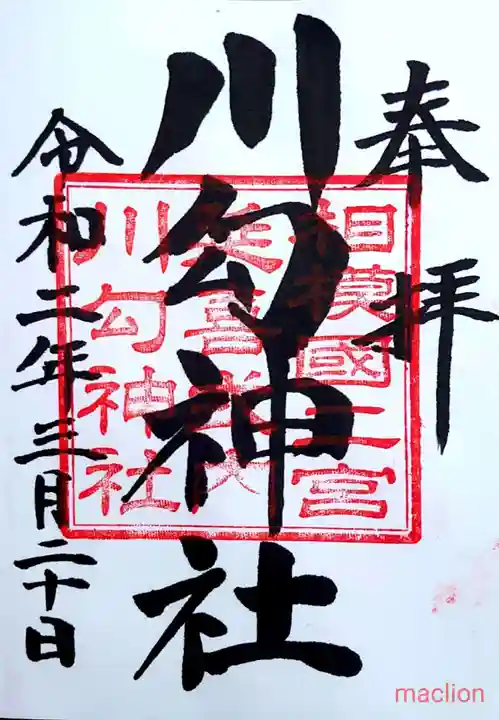 奉拝
川勾神社
相模國二宮
延喜式内
川勾神社
令和二年三月二十日
maclion